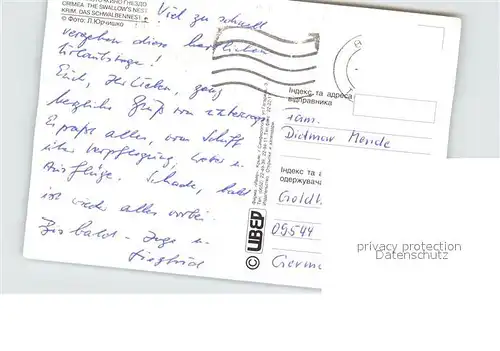 CRIMEA. THE SWALLOW'S NEST
KRIM. DAS SCHWALBENNEST
© Фото: Л.Юрчишко
Viel zu schnell
vergehen diese herrlichen
Urlaubstage!
Euch, Ihr Lieben, ganz
herzliche Grüße von unterwegs
Es passt alles, vom Schiff
über Verpflegung, Wetter u.
Ausflüge. Schade, bald
ist wieder alles vorbei.
Bis bald - Inge u.
Siegfried
© ИВЕР
Індекс та адреса
відправника
Fam.
Dietmar Mende
Індекс та а
одержувача
Goldb
09544
Germa
privacy protection
Datenschutz